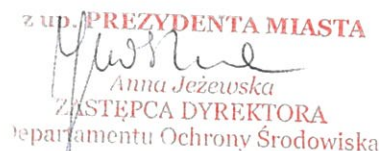 z up. PREZYDENTA MIASTA
Anna Jeżewska
ZASTĘPCA DYREKTORA
epartamentu Ochrony Środowiska